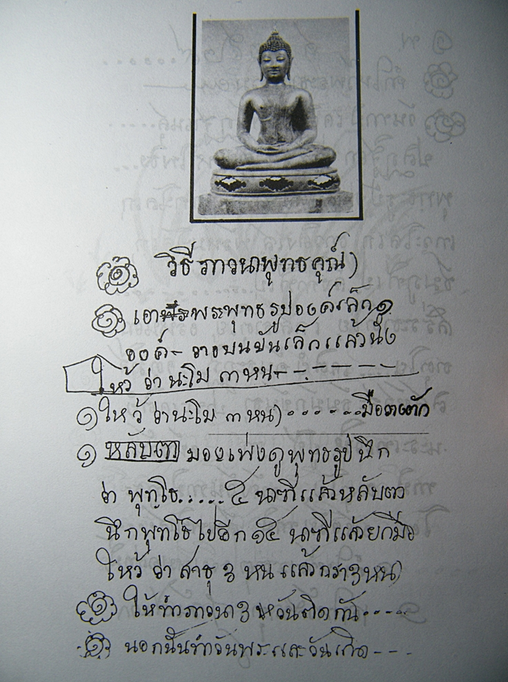 วิธีภาวนาพุทธคุณ์)
๑ เอาพระพุทธรูปองค์เล็ก ๑
องค์ - วางบนขันเล็กแล้วนั่ง
ไหว้ ว่า นะโม ๓ หน - - - - - -
๑ ไหว้ ว่า นะโม ๓ หน) - - - - - - มือตตัก
๑ หลับตา มองเพ่งดูพุทธรูป นึก
ว่า พุทโธ..... ๕ นาที แล้วหลับตา
นึกพุทโธไปอีก ๑๕ นาที แล้วยกมือ
ไหว้ ว่า สาธุ ๓ หน แล้วกราบ ๓ หน)
ให้ทำภาวนา ๓ วันติดกัน - - - -
๑ นอกนั้นทำวันพระและวันเกิด - - -